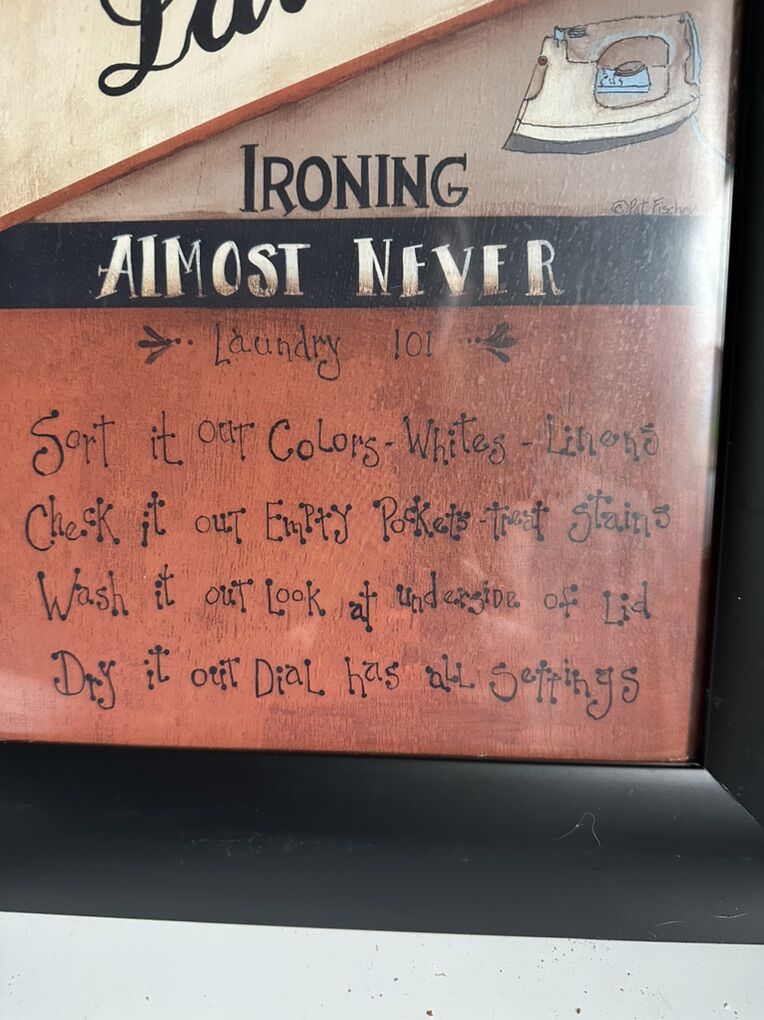 Lau
IRONING
©Pat Fischer
ALMOST NEVER
Laundry 101
Sort it out Colors - Whites - Linens
Check it out Empty Pockets - treat Stains
Wash it out Look at underside of Lid
Dry it out Dial has all settings